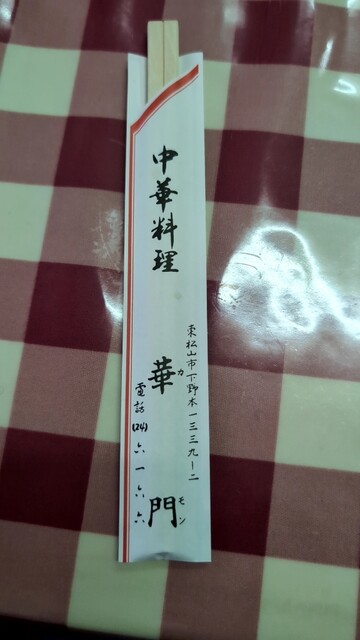 東松山市下野本一三三九ー二
中華料理 華門
カ モン
電話(24)六一六六